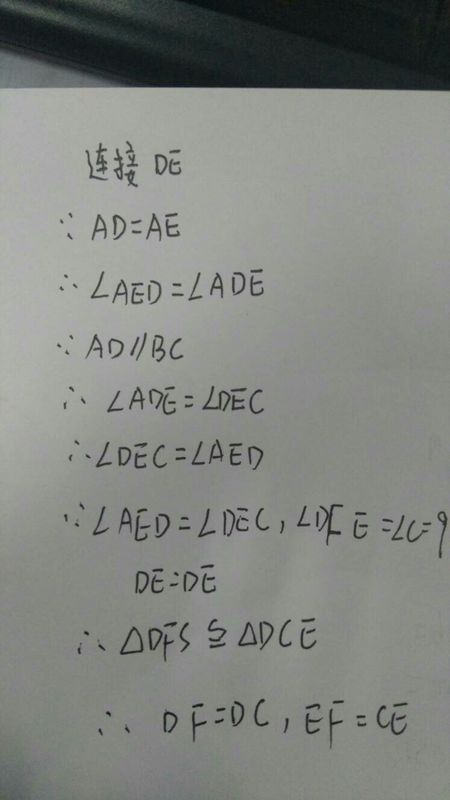 连接 DE
∵ AD=AE
∴ ∠AED=∠ADE
∵ AD//BC
∴ ∠ADE=∠DEC
∴ ∠DEC=∠AED
∵ ∠AED=∠DEC, ∠DFE=∠C=9
DE=DE
∴ △DFS≌△DCE
∴ DF=DC, EF=CE